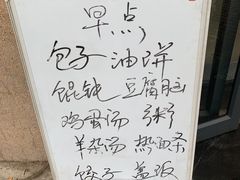 早点
包子 油饼
馄饨 豆腐脑
鸡蛋汤
羊杂汤 热面条
饺子 盖饭